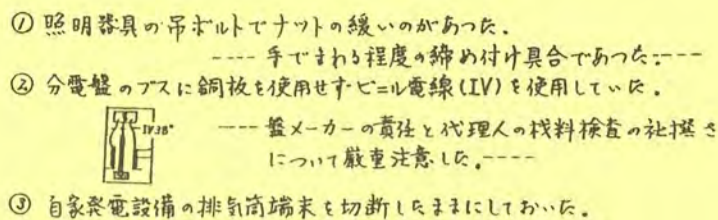 ① 照明器具の吊ボルトでナットの緩いのがあった.
---- 手でまわる程度の締め付け具合であった.----
② 分電盤のブスに銅板を使用せずビニル電線(IV)を使用していた.
IV38°
---- 盤メーカーの責任と代理人の材料検査の杜撰さ
について厳重注意した.----
③ 自家発電設備の排気筒端末を切断したままにしておいた.